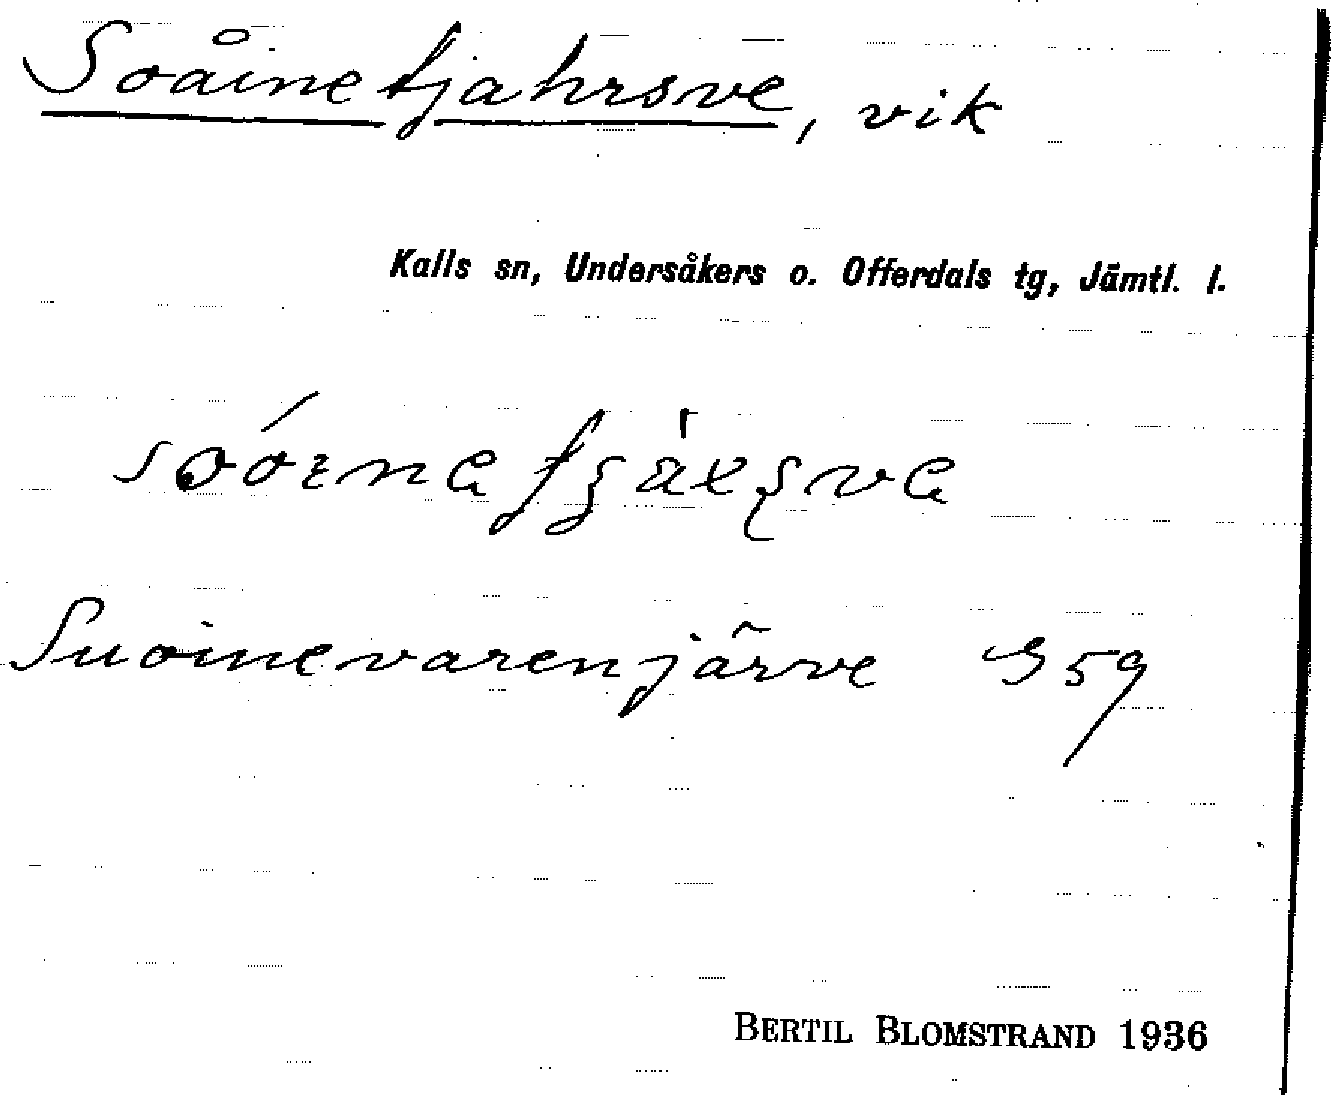 Soåinetjahrsve, vik
Kalls sn, Undersåkers o. Offerdals tg, Jämtl. l.
Suoinevarenjärve 959
BERTIL BLOMSTRAND 1936